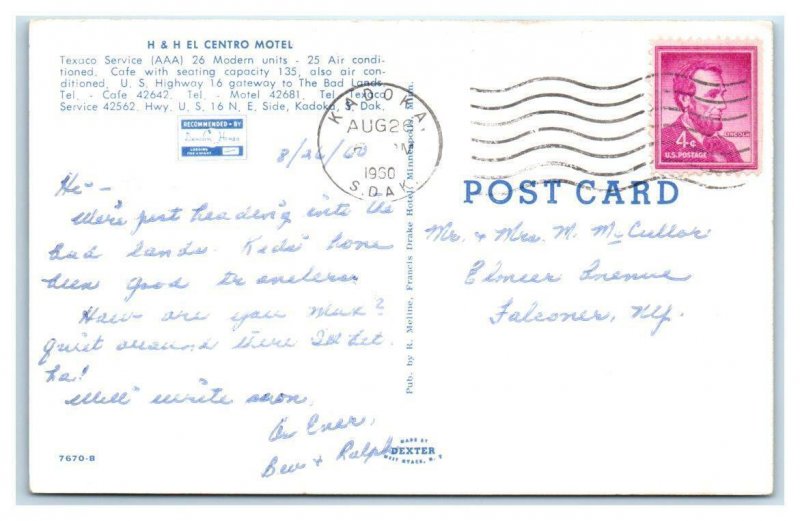 H & H EL CENTRO MOTEL
Texaco Service (AAA) 26 Modern units - 25 Air condi-
tioned. Cafe with seating capacity 135, also air con-
ditioned. U. S. Highway 16 gateway to The Bad Lands
Tel. - Cafe 42642. Tel. - Motel 42681. Tel. Texaco
Service 42562. Hwy. U. S. 16 N. E. Side, Kadoka, S. Dak.
RECOMMENDED · BY
Duncan Hines
8/26/60
KADOKA,
AUG 26
M
1960
S. DAK.
4¢
LINCOLN
U.S. POSTAGE
POST CARD
Hi -
We're just heading into the
bad lands. Kids' have
been good travelers.
How are you Max?
quiet around there I'll bet.
ha!
Will write soon.
As Ever,
Bev & Ralph
Mr. & Mrs. M. McCullor
Elmeer Avenue
Falconer, N.Y.
Pub. by R. Meline, Francis Drake Hotel, Minneapolis, Minn.
MADE BY
DEXTER
WEST NYACK, N. Y.
7670-B